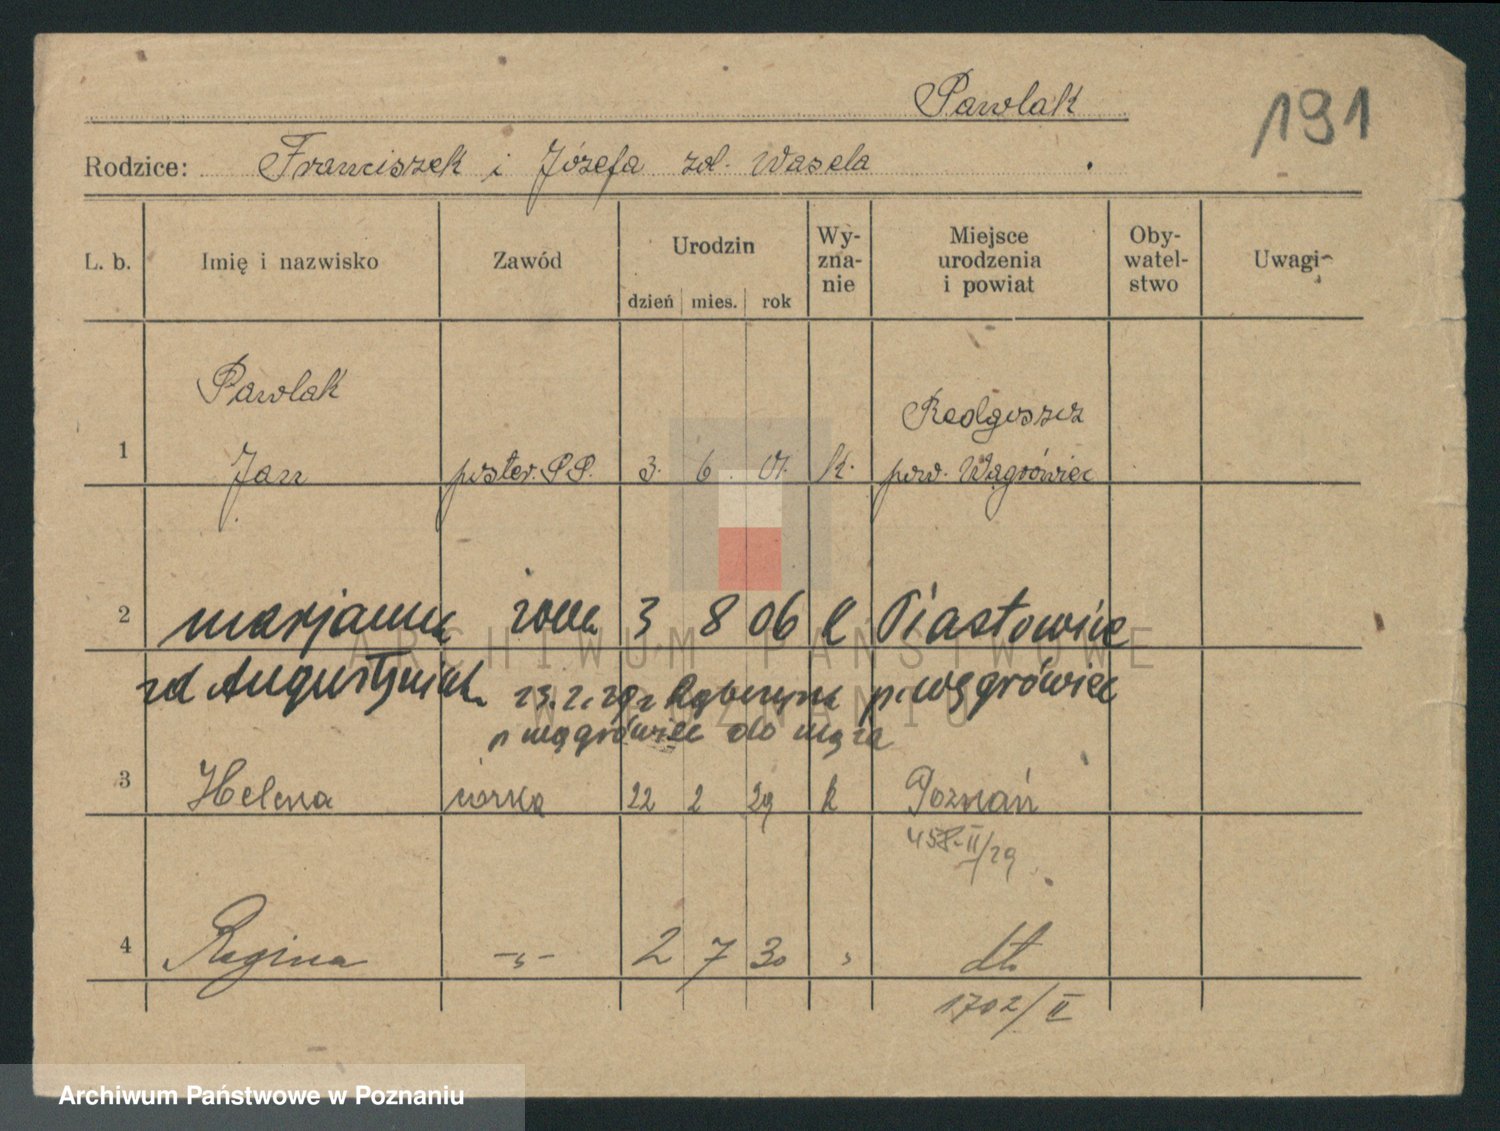 Pawlak
191
Rodzice: Franciszek i Józefa zd. Wasela
L. b. Imię i nazwisko Zawód Urodzin dzień mies. rok Wy-zna-nie Miejsce urodzenia i powiat Oby-watel-stwo Uwagi
Pawlak
1 Jan poster. P.P. 3. 6. 01. k. Redgoszcz
pow. Wągrówiec
2 Marjanna żona 3 8 06 k Piastowice
zd Augustyniak p. Wągrówiec
23.2.29 z
p Wągrówiec do męża
3 Helena córka 22 2 29 k Poznań
458-II/29
4 Regina -„- 2 7 30 „ dto
1702/II
ARCHIWUM PAŃSTWOWE
W POZNANIU
Archiwum Państwowe w Poznaniu